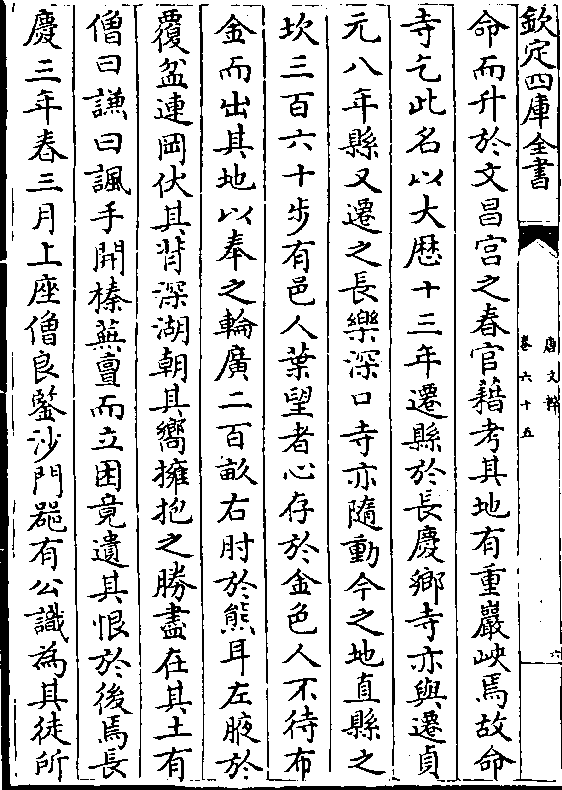 欽定四庫全書
唐文粹
卷六十五
六
命而升於文昌宫之春官籍考其地有重巖峡焉故命
寺乞此名以大厯十三年遷縣於長慶鄉寺亦與遷貞
元八年縣又遷之長樂深口寺亦隨動今之地直縣之
坎三百六十步有邑人葉望者心存於金色人不待布
金而出其地以奉之輪廣二百畝右肘於熊耳左腋於
覆盆連岡伏其背深湖朝其嚮擁抱之勝盡在其土有
僧曰謙曰諷手開榛蕪亶而立困竟遺其恨於後焉長
慶三年春三月上座僧良鑒沙門㟴有公識為其徒所